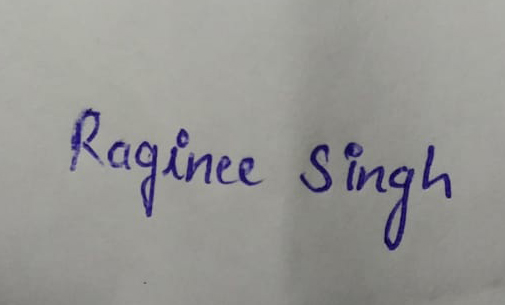 Raginee Singh